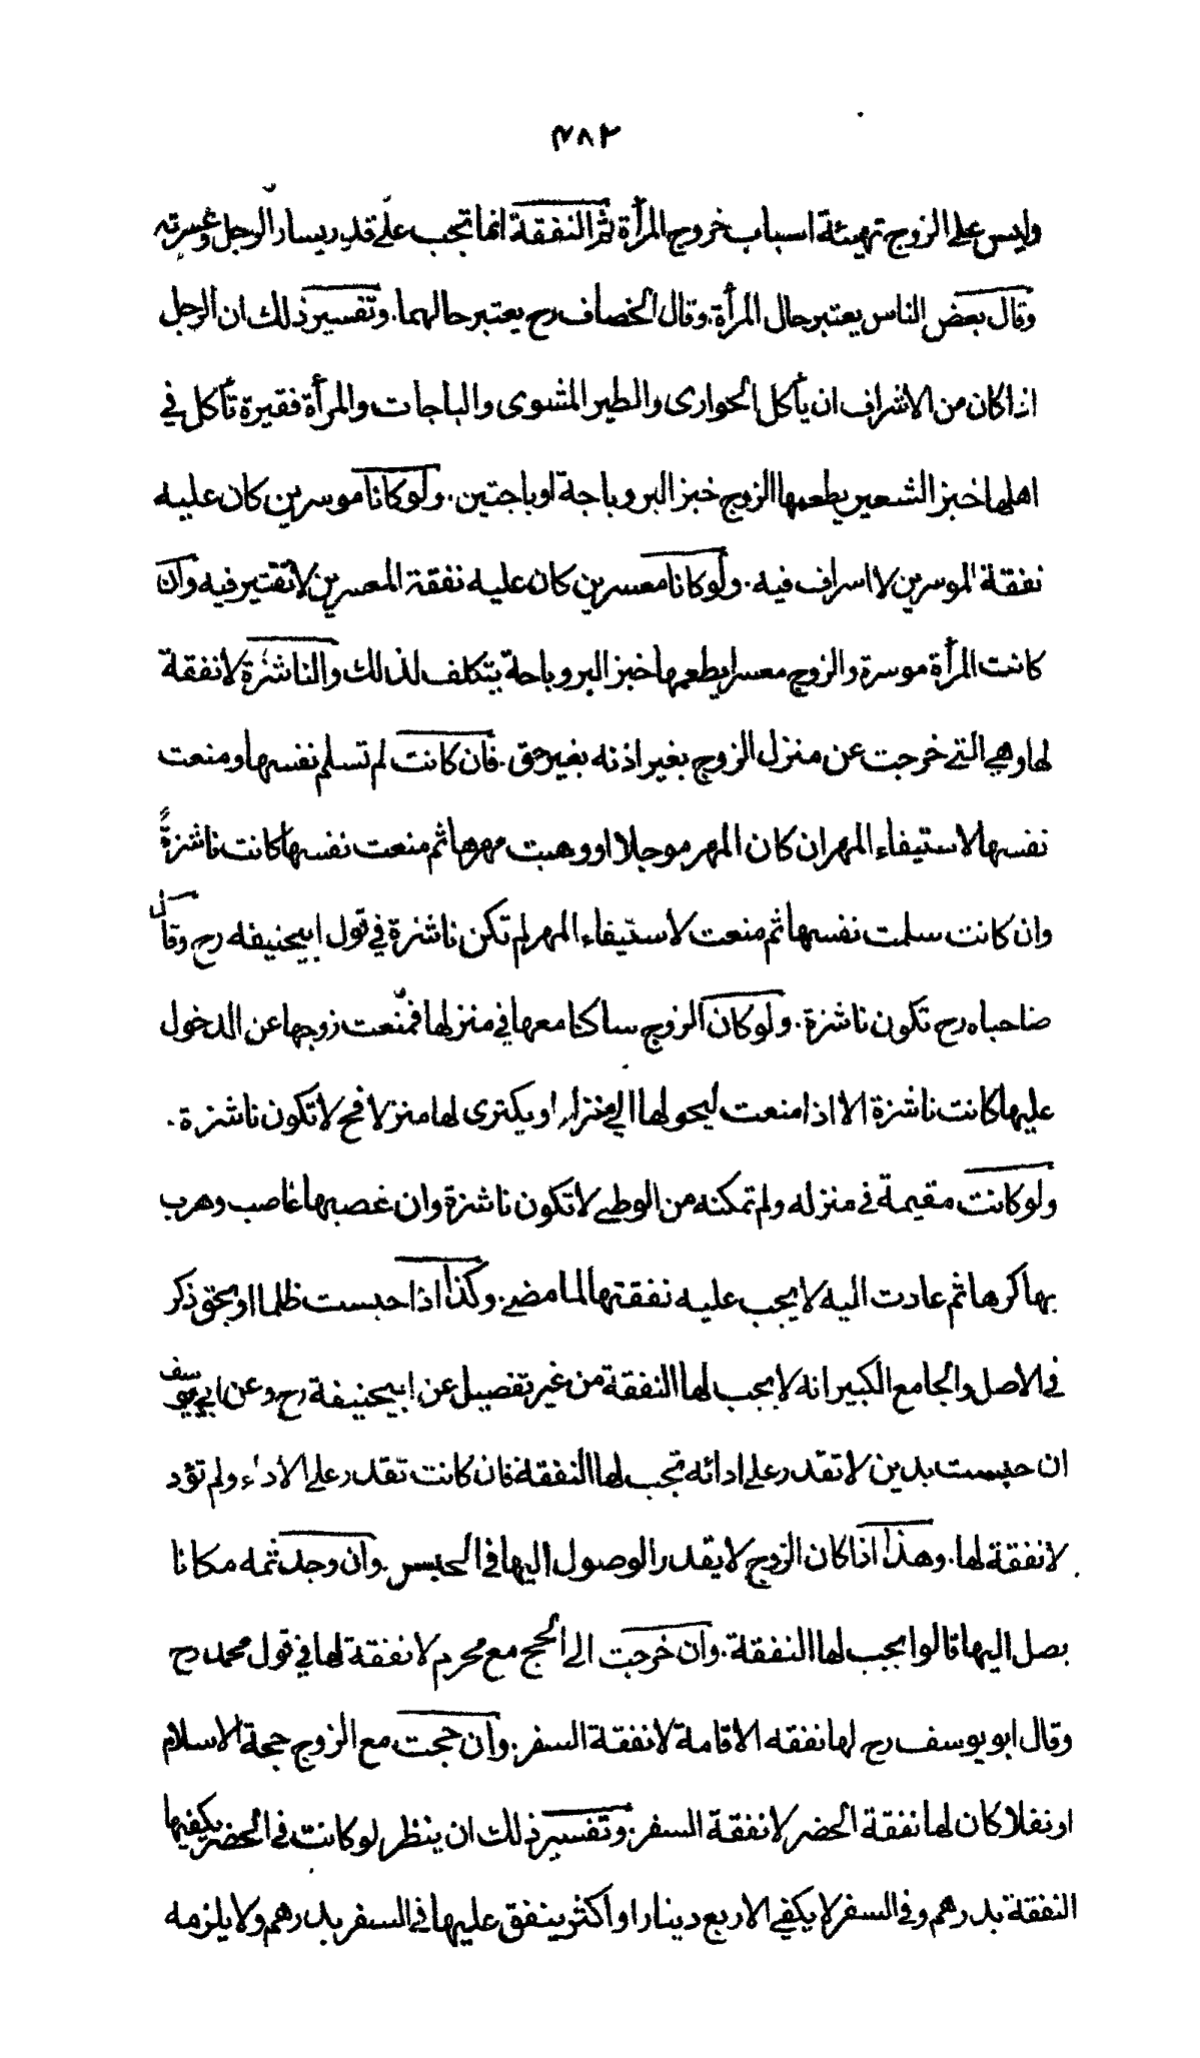 ٣٨٢
وليس على الزوج تهيئة اسباب خروج المرأة ثم النفقة انما تجب على قدر يسار الرجل وعسرته
وقال بعض الناس يعتبر حال المرأة. وقال الخصاف رح يعتبر حالهما. وتفسير ذلك ان الرجل
اذا كان من الاشراف ان يأكل الحوارى والطير المشوى والباجات والمرأة فقيرة تأكل في
اهلها خبز الشعير يطعمها الزوج خبز البر وباجة او باجتين. ولو كانا موسرين كان عليه
نفقة الموسرين لا اسراف فيه. ولو كانا معسرين كان عليه نفقة المعسرين لا تقتير فيه وان
كانت المرأة موسرة والزوج معسرا يطعمها خبز البر وباحة يتكلف لذلك والناشزة لا نفقة
لها وهي التي خرجت عن منزل الزوج بغير اذنه بغير حق. فان كانت لم تسلم نفسها ومنعت
نفسها لاستيفاء المهر ان كان المهر موجلا او وهبت مهرها ثم منعت نفسها كانت ناشزةً
وان كانت سلمت نفسها ثم منعت لاستيفاء المهر لم تكن ناشزة في قول ابيحنيفه رح وقال
صاحباه رح تكون ناشزة. ولو كان الزوج ساكنا معها في منزلها فمنّعت زوجها عن الدخول
عليها كانت ناشزة الا اذا منعت ليحولها الي منزله او يكترى لها منزلا فح لا تكون ناشزة.
ولو كانت مقيمة في منزله ولم تمكنه من الوطي لا تكون ناشزة وان غصبها غاصب وهرب
بها كرها ثم عادت اليه لا يجب عليه نفقتها لما مضى. وكذا اذا حبست ظلما او بحق ذكر
في الاصل والجامع الكبير انه لا يجب لها النفقة من غير تفصيل عن ابيحنيفة رح وعن ابي يوسف
ان حبست بدين لا تقدر على ادائه تجب لها النفقة فان كانت تقدر على الاداء ولم تؤد
لا نفقة لها. وهذا اذا كان الزوج لا يقدر الوصول اليها في الحبس. وان وجد ثمه مكانا
يصل اليها قالوا يجب لها النفقة. وان خرجت الى الحج مع محرم لا نفقة لها في قول محمد رح
وقال ابو يوسف رح لها نفقه الاقامة لا نفقة السفر. وان حجت مع الزوج حجة الاسلام
او نفلا كان لها نفقة الحضر لا نفقة السفر. وتفسير ذلك ان ينظر لو كانت في الحضر يكفيها
النفقة بدرهم وفي السفر لا يكفي الا ربع دينار او اكثر ينفق عليها في السفر بدرهم ولا يلزمه